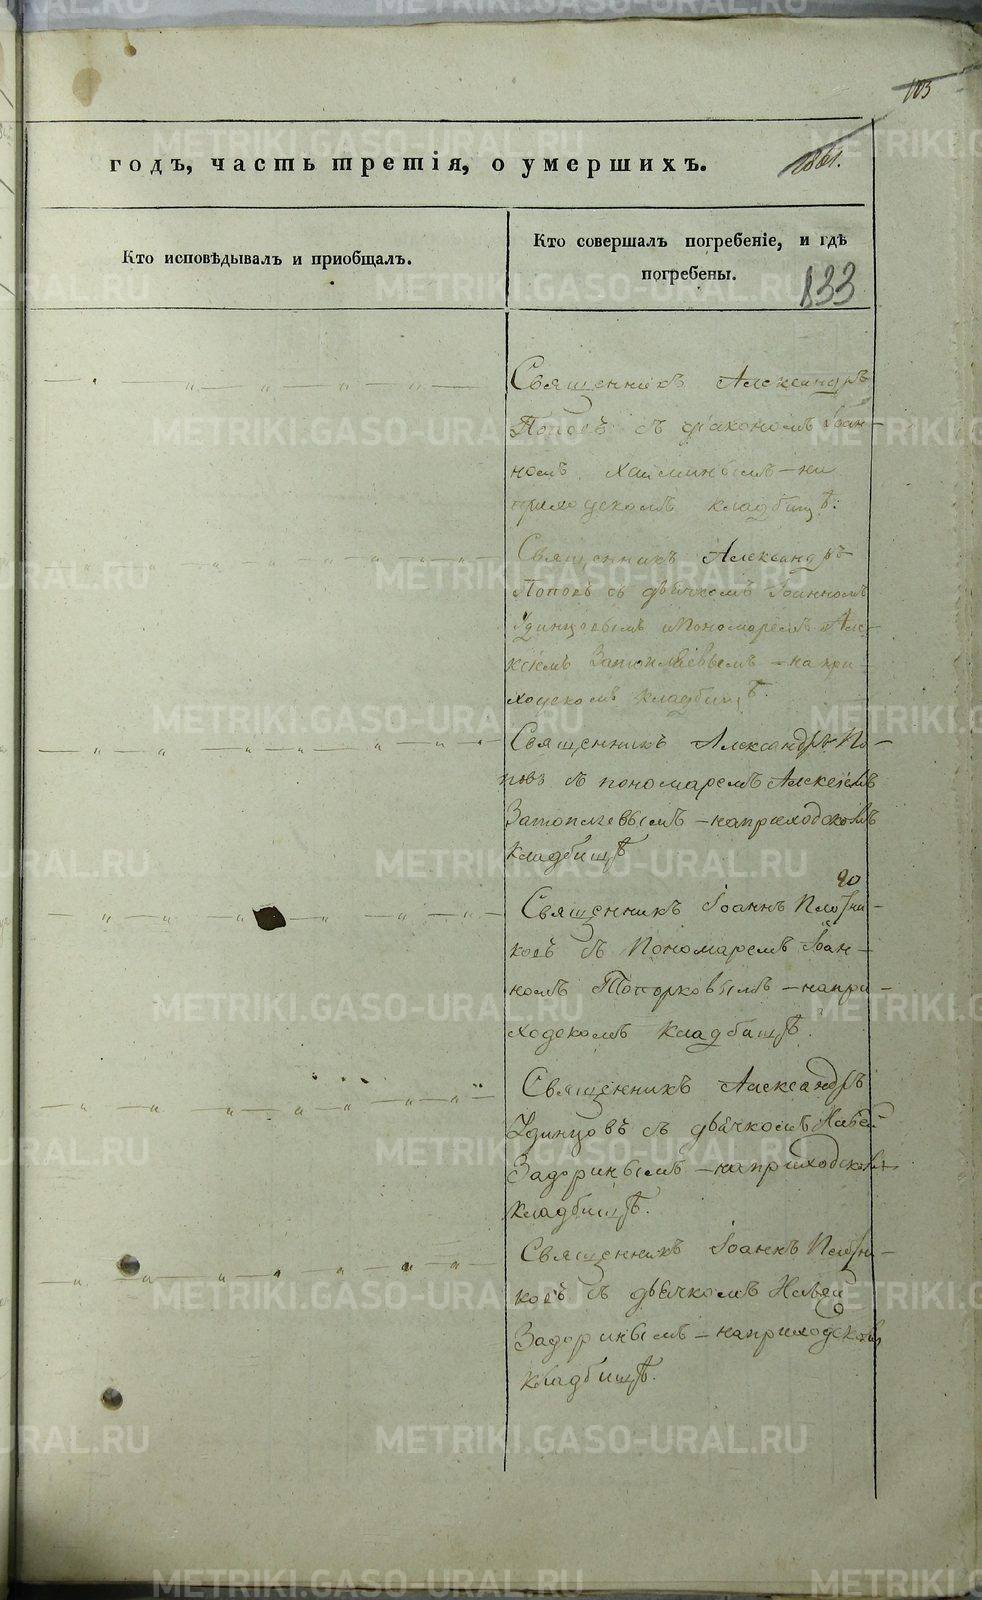 103
годъ, часть третія, о умершихъ.
1861.
Кто исповѣдывалъ и пріобщалъ.
Кто совершалъ погребеніе, и гдѣ
погребены.
833
Священникъ Александръ
Поповъ съ діакономъ Іоан-
номъ на
приходскомъ кладбищѣ.
Священникъ Александръ
Поповъ съ дьячкомъ Іоанномъ
Удинцовымъ и Пономаремъ Але-
ксіемъ Затопляевымъ – на при-
ходскомъ кладбищѣ.
Священникъ Александръ По-
повъ съ пономаремъ Алексіемъ
Затопляевымъ – на приходскомъ
кладбищѣ
Священникъ Іоаннъ Плотни-
ковъ съ Пономаремъ Іоан-
номъ Топорковымъ – на при-
ходскомъ кладбищѣ.
Священникъ Александръ
Удинцовъ съ дьячкомъ
Задоринымъ – на приходскомъ
кладбищѣ.
Священникъ Іоаннъ Плотни-
ковъ съ дьячкомъ
Задоринымъ – на приходскомъ
кладбищѣ.
METRIKI.GASO-URAL.RU